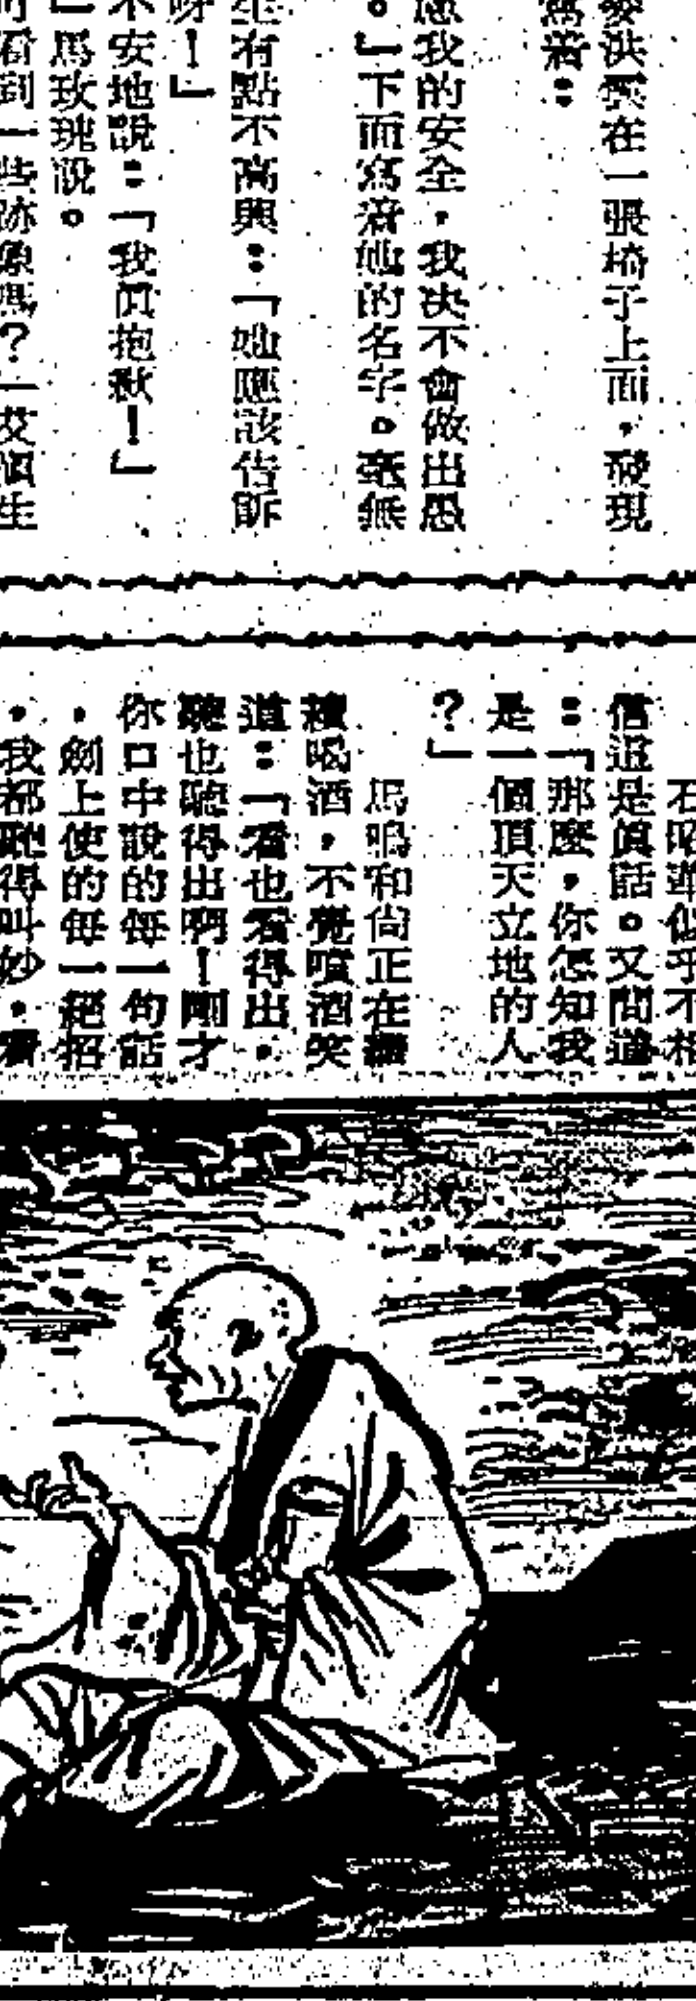 洪雲在一張椅子上面，發現
寫着：
我的安全，我决不會做出愚
。」下面寫着她的名字。毫無
生有點不高興：「她應該告訴
呀！」
不安地說：「我眞抱歉！」
」馬玫瑰說。
看到一些跡象嗎？」艾愼生
石昭華似乎不相
信這是眞話。又問道
：「那麼，你怎知我
是一個頂天立地的人
？」
馬鳴和尙正在繼
續喝酒，不覺噴酒笑
道：「看也看得出，
聽也聽得出啊！剛才
你口中說的每一句話
，劍上使的每一絕招
，我都聽得叫妙，看